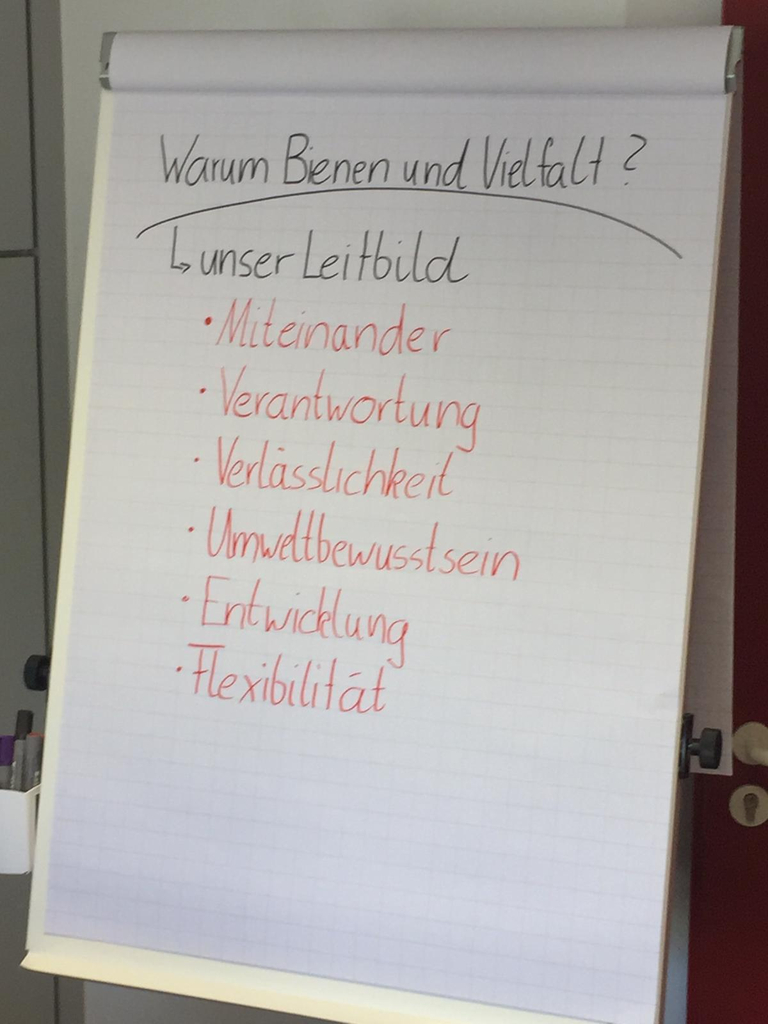 Warum Bienen und Vielfalt?
↳ unser Leitbild
• Miteinander
• Verantwortung
• Verlässlichkeit
• Umweltbewusstsein
• Entwicklung
• Flexibilität